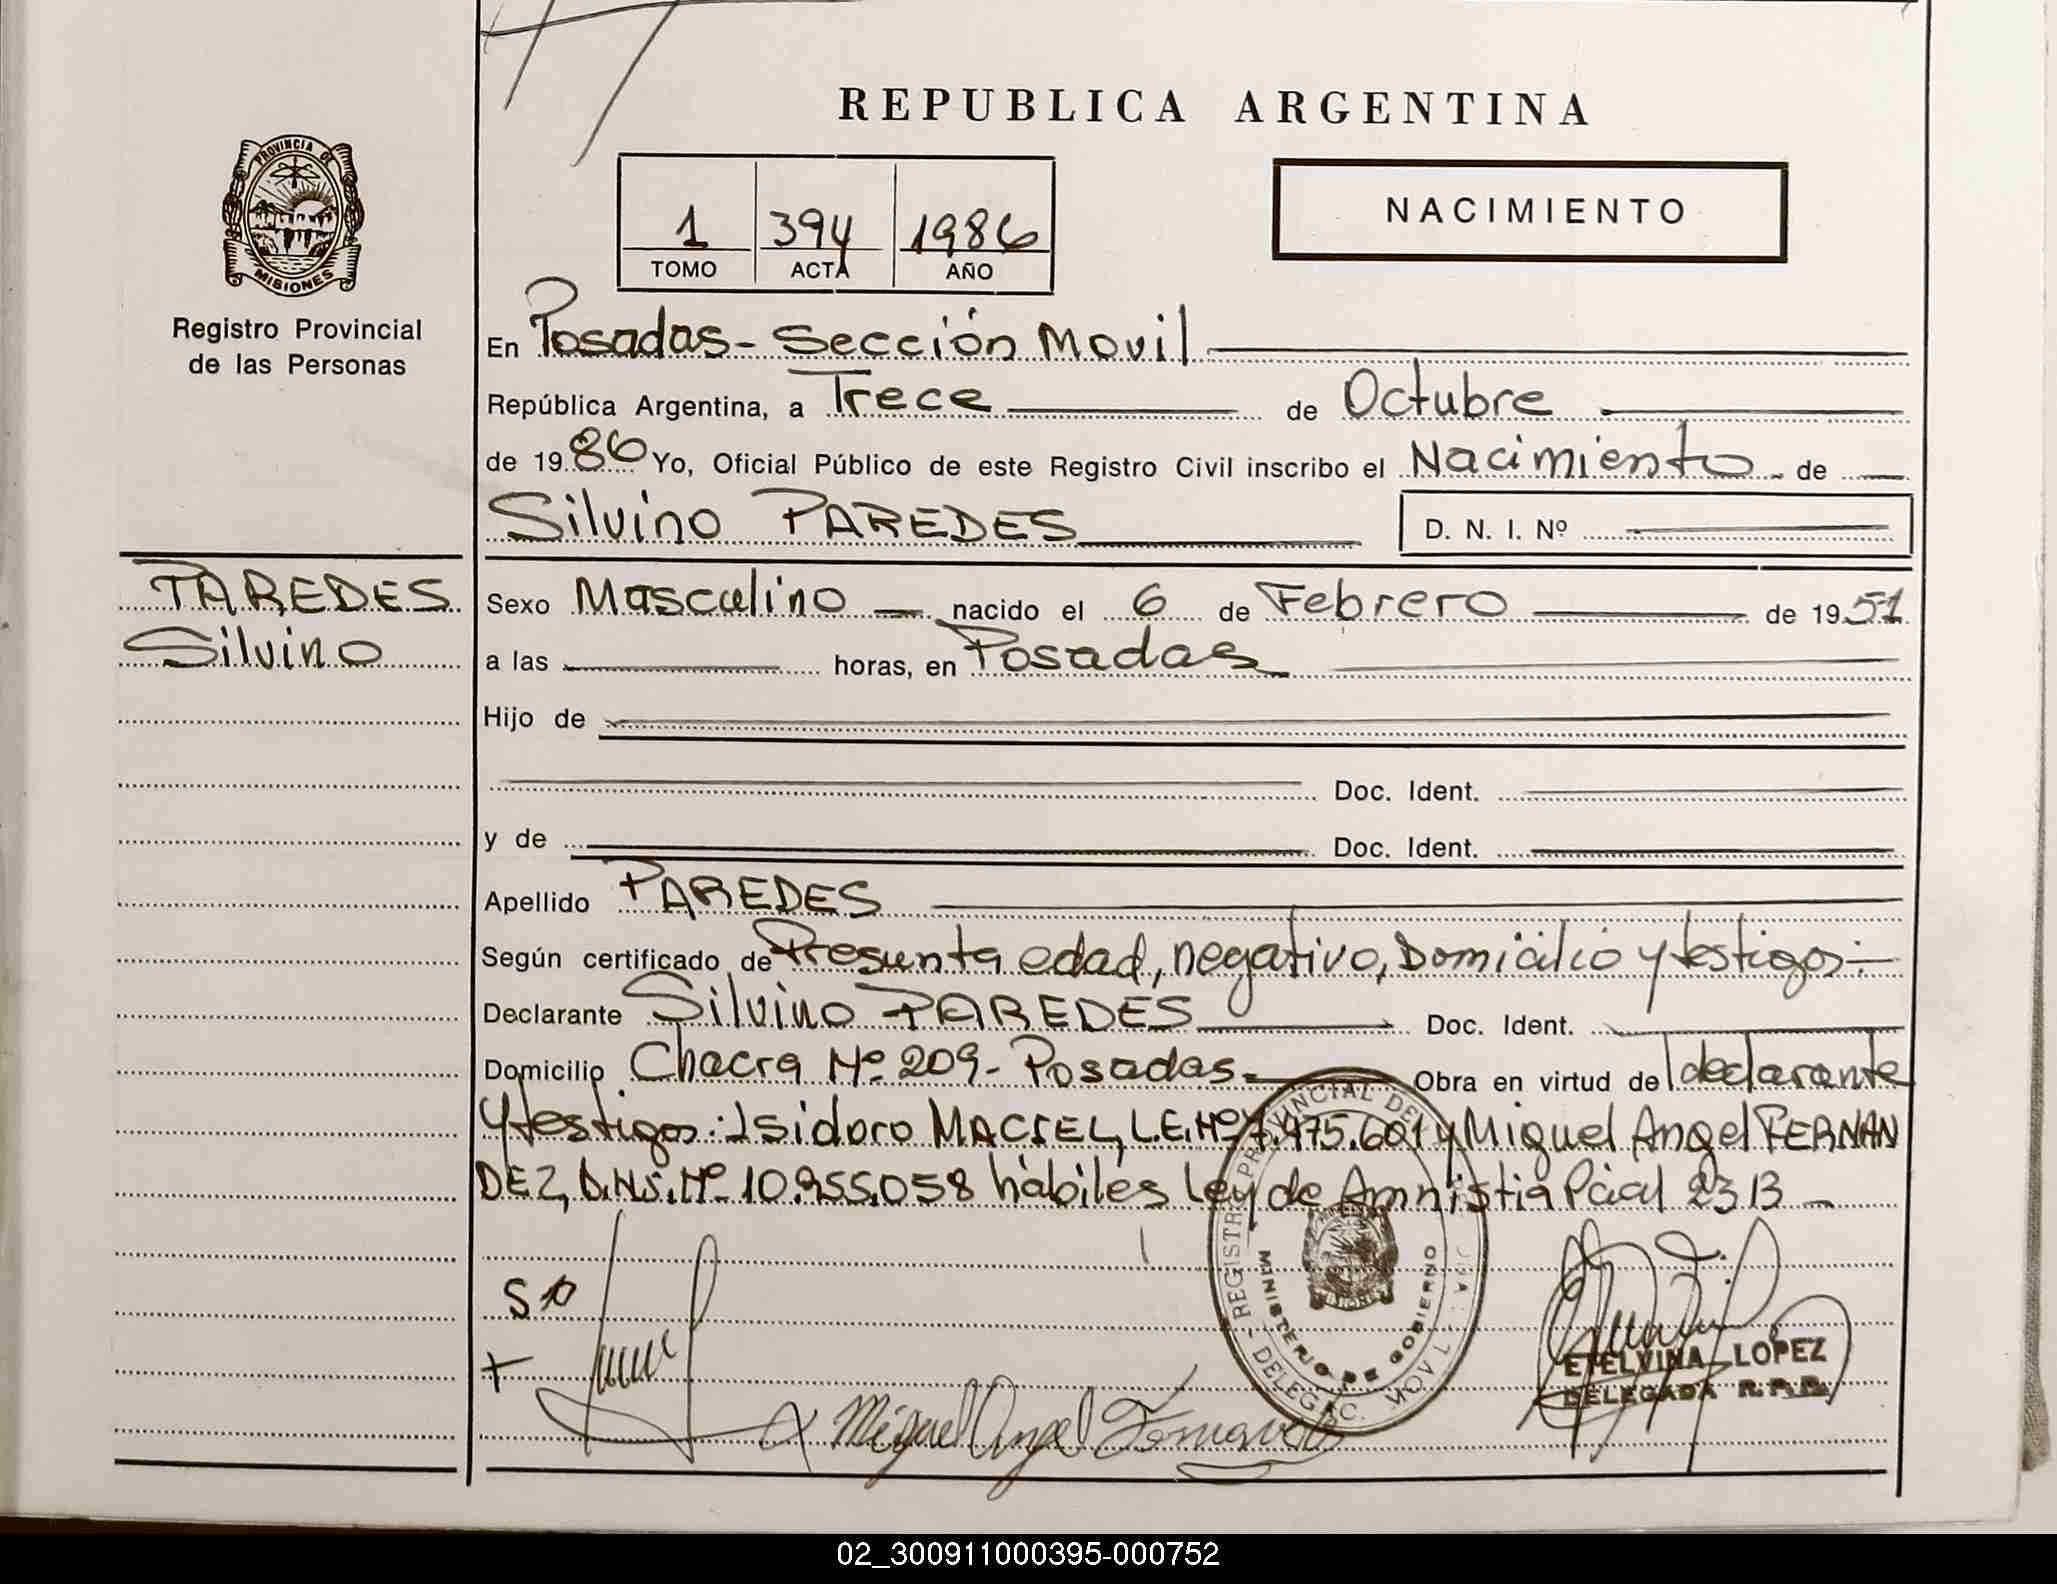 REPUBLICA ARGENTINA
PROVINCIA DE
MISIONES
Registro Provincial
de las Personas
1 394 1986
TOMO ACTA AÑO
NACIMIENTO
En Posadas - Sección Movil
República Argentina, a Trece de Octubre
de 1986 Yo, Oficial Público de este Registro Civil inscribo el Nacimiento de
Silvino PAREDES D. N. I. Nº
PAREDES
Silvino
Sexo Masculino nacido el 6 de Febrero de 1951
a las horas, en Posadas
Hijo de
Doc. Ident.
y de Doc. Ident.
Apellido PAREDES
Según certificado de Presunta edad, negativo, Domicilio y testigos:-
Declarante Silvino PAREDES Doc. Ident.
Domicilio Chacra Nº 209 - Posadas - Obra en virtud de declarante
y testigos: Isidoro MACIEL, L.E. Nº 7.475.601 y Miguel Angel FERNAN
DEZ, D.N.I. Nº 10.955.058 hábiles Ley de Amnistia Pcial 2313 -
REGISTRO PROVINCIAL DE
MINISTERIO DE GOBIERNO
DELEGAC. MOVIL
Miguel Angel
ETELVINA LOPEZ
DELEGADA R.P.P.
02_300911000395-000752